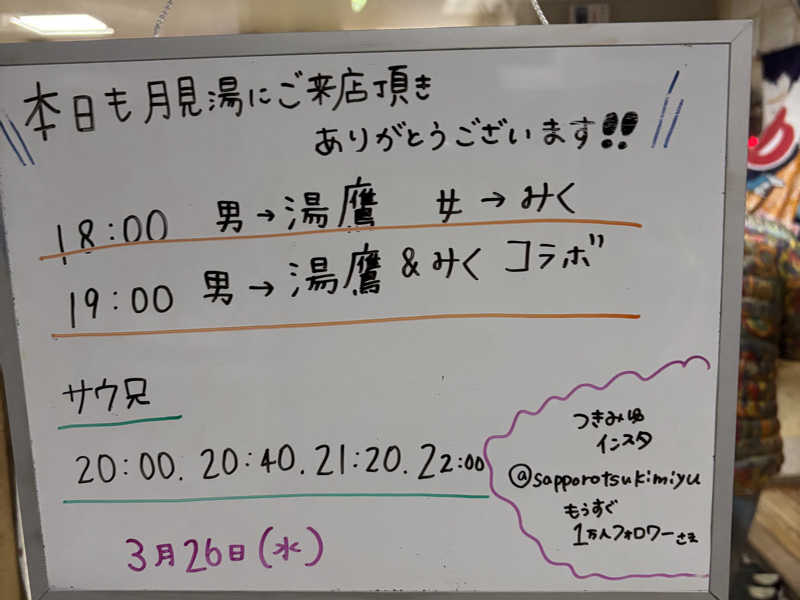 本日も月見湯にご来店頂き
ありがとうございます!!
18:00 男→湯鷹 女→みく
19:00 男→湯鷹&みく コラボ
サウ兄
20:00. 20:40. 21:20. 22:00
3月26日(水)
つきみゆ
インスタ
@sapporotsukimiyu
もうすぐ
1万人フォロワーさま